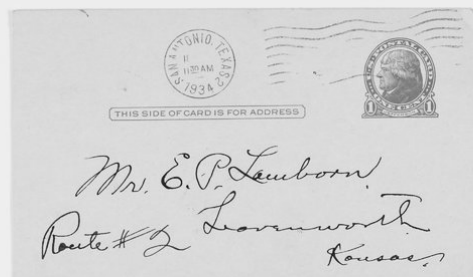 SAN ANTONIO, TEXAS 2
11
1130 AM
1934
THIS SIDE OF CARD IS FOR ADDRESS
1 1
Mr. E. P. Lamborn
Route # 2 Leavenworth
Kansas.